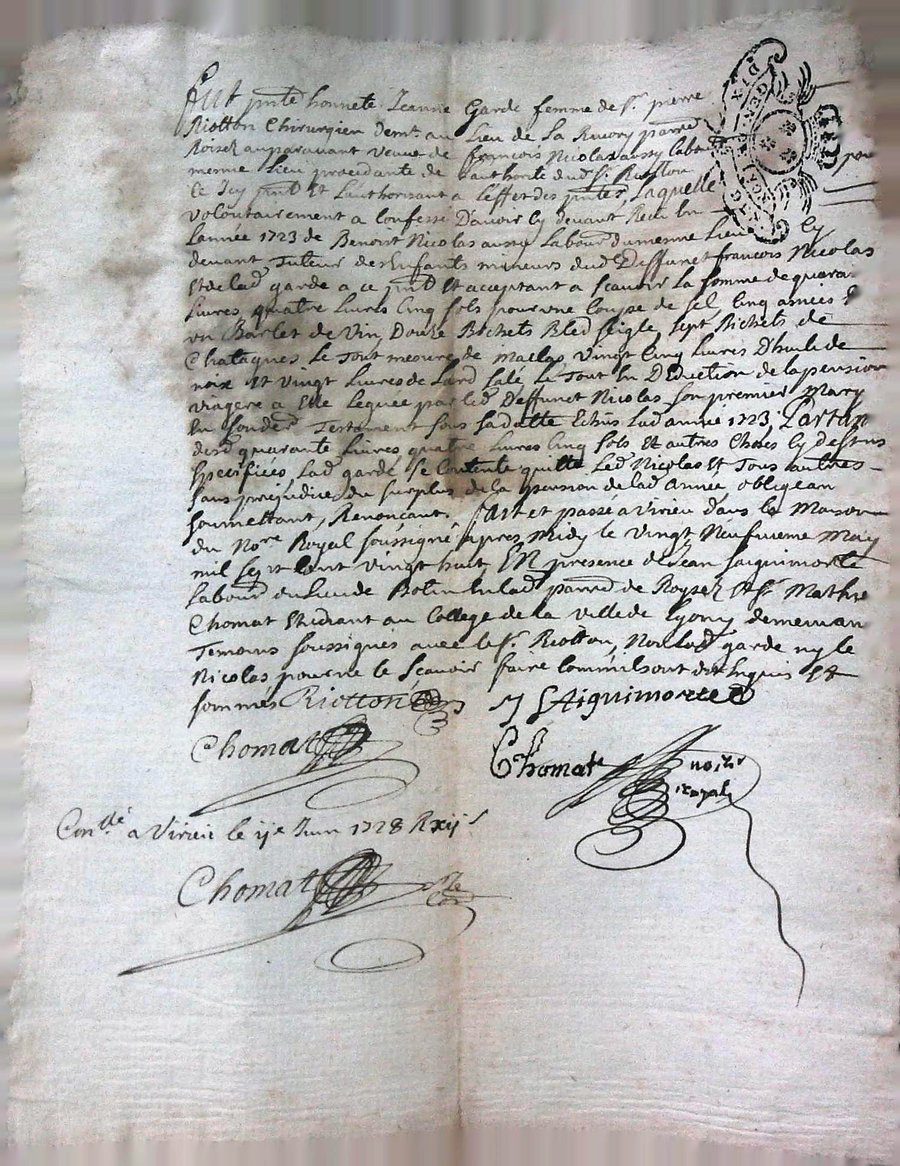 Fut pnte honnete Jeanne Garde femme de Sr. pierre
Riotton Chirurgien demt. au Lieu de La Ruory parre
Roisey auparavant veuve de francois Nicolas aussy labour
mesme Lieu procedante de l'authorité dud. Sr. Riotton
Ce Icy pnt Et L'authorisant a L'effet des pntes, Laquelle
volontairement a Confessé D'avoir Cy devant Receu En
Lannée 1723 de Benoit Nicolas aussy Labourd. du mesme Lieu Cy
devant Tuteur des Enfants mineurs dud. Deffunct francois Nicolas
Et de lad. garde a ce pnt Et acceptant a Scavoir La Somme de quara
Livres, quatre Livres Cinq Sols pour une Coupe de Sel, Cinq
un Barlet de Vin, Douze Bichets Bled Seigle, Sept Bichets de
Chatagnes Le Tout mesure de Maclas, Vingt Cinq Livres D'huile de
noix Et Vingt Livres de Lard Salé, Le Tout En Deduction de la pension
viagere a Elle Leguée par led. Deffunct Nicolas Son premier Mary
En Son der. Testament Sous Sa datte Echus Lad. année 1723, Partan
desd. quarante Livres quatre Livres Cinq Sols Et autres Choses Cy dessus
Specifiées Lad. garde Se Contente quitte Led. Nicolas Et Tous autres
Sans prejudice du Surplus de la pension de lad. Année obligean
Soumettant, Renoncant. fait et passé a Virieu dans la Maison
du Nore. Royal Soussigné apres midy le vingt Neufvieme May
mil Sept Cent vingt huit, En presence de Jean Saiguimorte
Labourd. du Lieu de Botin En lad. parre de Roysey Et Sr. Mathie
Chomat Etudiant au College de la Ville de Lyon, y demeuran
Temoins Soussignés avec le Sr. Riotton, Non lad. garde ny le
Nicolas pour ne le Scavoir faire Comme ils ont de Enquis Et
Sommés Riotton J SAiguimorte
Chomat
Chomat noire royal
Conllé a Virieu le 11e Juin 1728 R xij s
Chomat